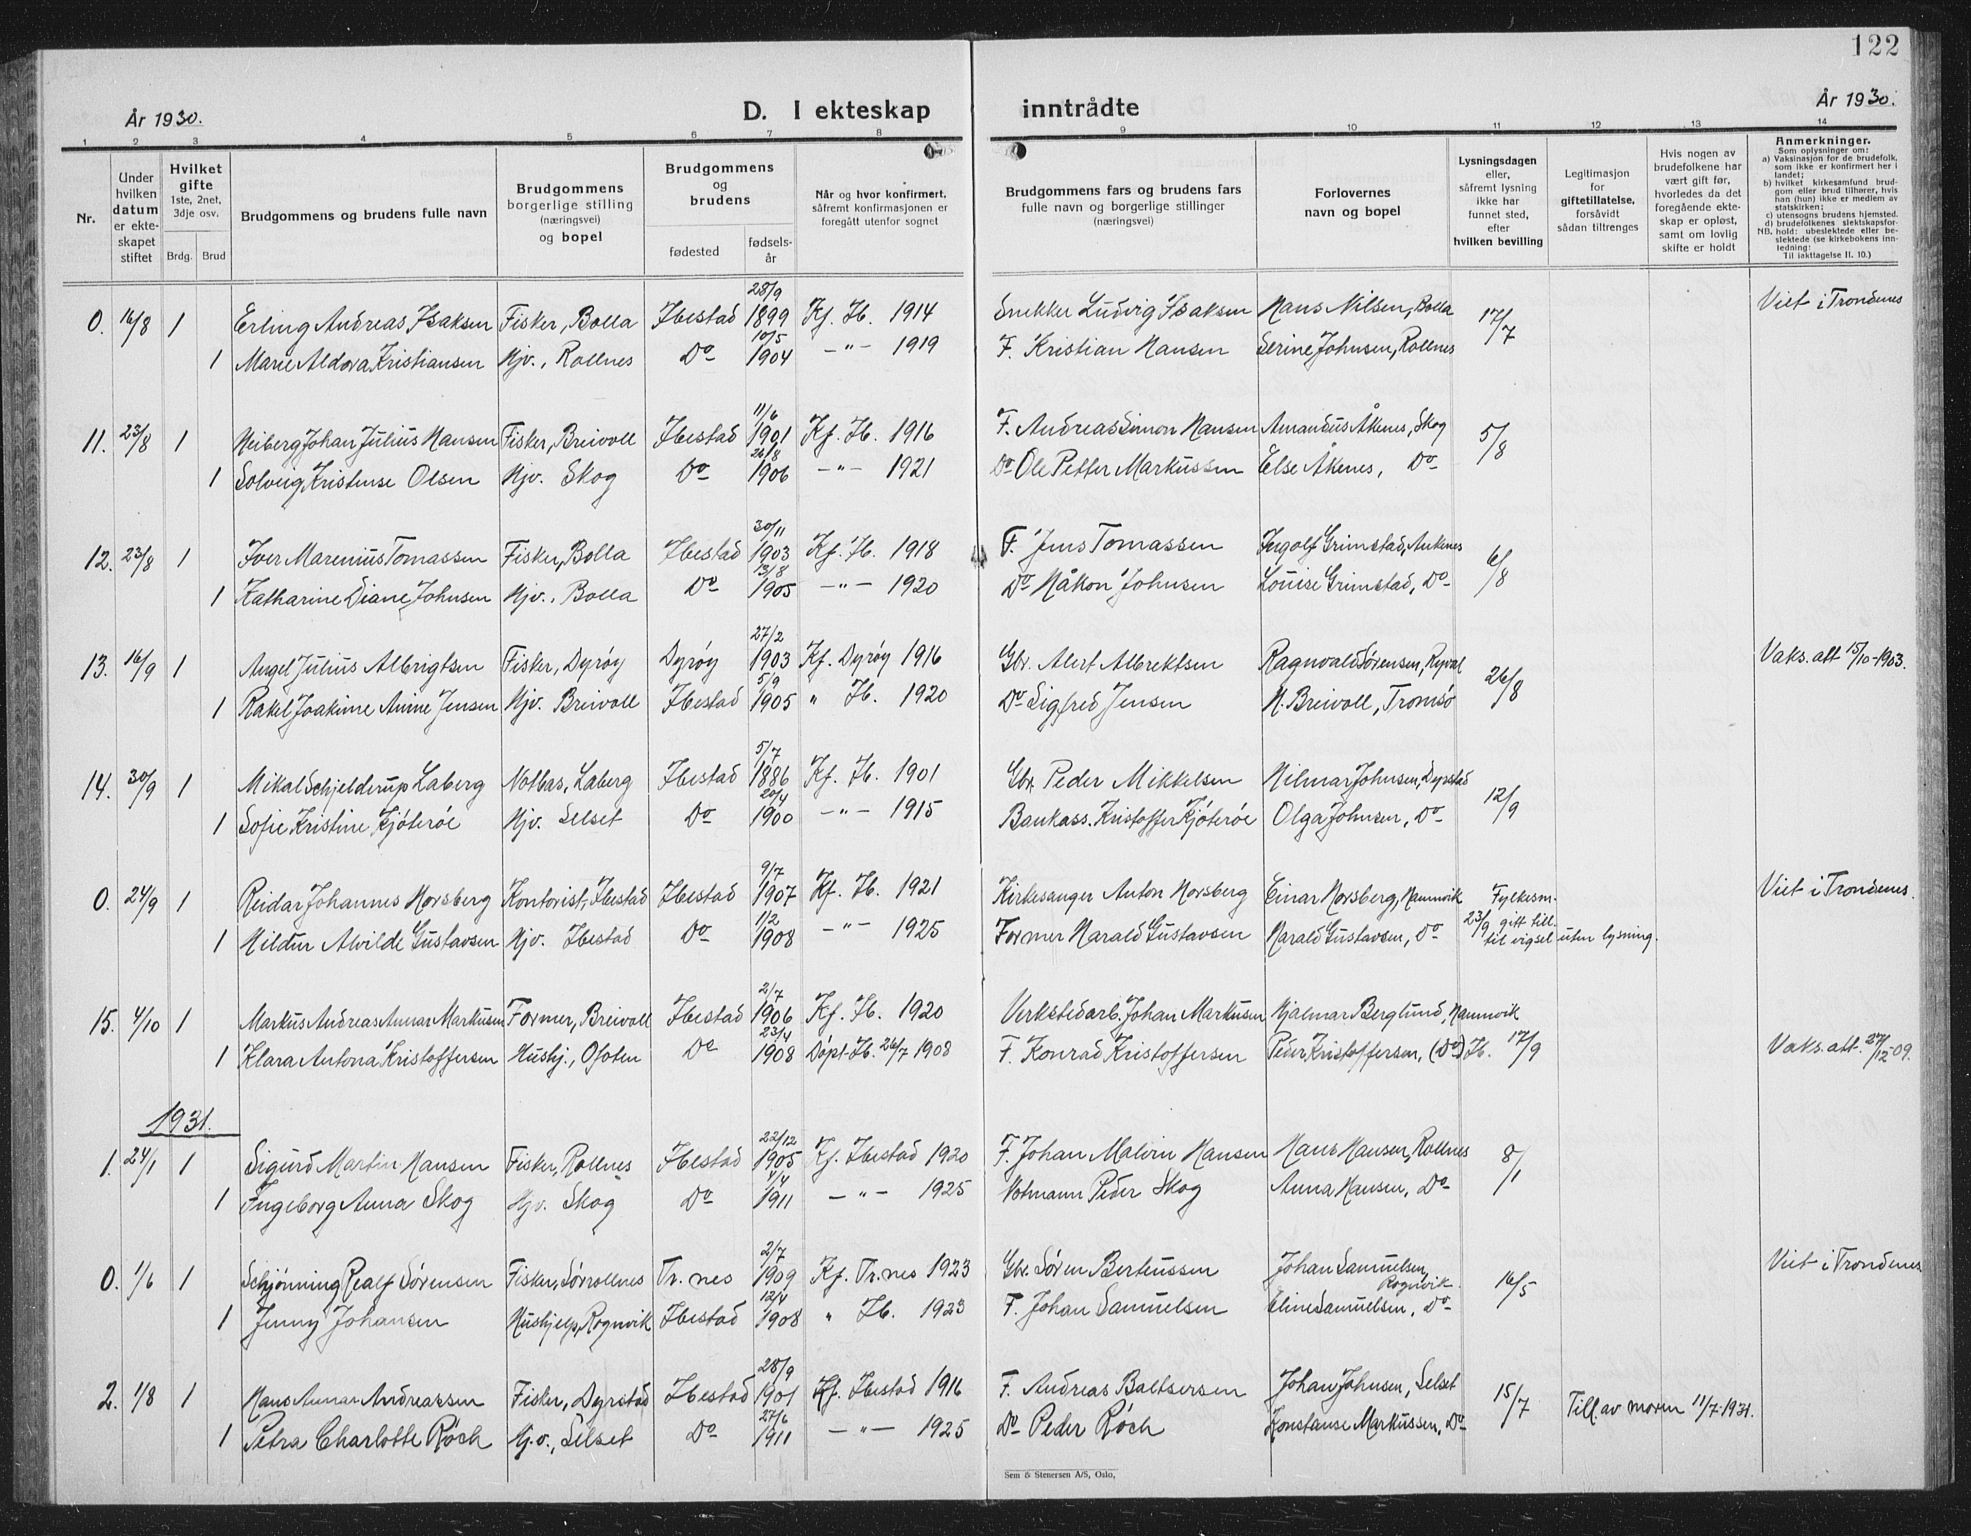 122
År 1930. D. I ekteskap inntrådte År 1930.
1 2 3 4 5 6 7 8 9 10 11 12 13 14
Nr.
Under hvilken datum er ekte-skapet stiftet
Hvilket gifte 1ste, 2net, 3dje osv.
Brdg. Brud
Brudgommens og brudens fulle navn
Brudgommens borgerlige stilling (næringsvei) og bopel
Brudgommens og brudens
fødested fødsels-år
Når og hvor konfirmert, såfremt konfirmasjonen er foregått utenfor sognet
Brudgommens fars og brudens fars fulle navn og borgerlige stillinger (næringsvei)
Forlovernes navn og bopel
Lysningsdagen eller, såfremt lysning ikke har funnet sted, efter hvilken bevilling
Legitimasjon for giftetillatelse, forsåvidt sådan tiltrenges
Hvis nogen av brudefolkene har vært gift før, hvorledes da det foregående ekte-skap er opløst, samt om lovlig skifte er holdt
Anmerkninger.
Som oplysninger om:
a) Vaksinasjon før de brudefolk, som ikke er konfirmert her i landet;
b) hvilket kirkesamfund brud-gom eller brud tilhører, hvis han (hun) ikke er medlem av statskirken;
c) utensogns brudens hjemsted.
d) brudefolkenes slektskapsfor-hold: ubeslektede eller be-slektede (se kirkebokens inn-ledning:
NB. Til iakttagelse II. 10.)
0. 16/8 1 Erling Andreas Isaksen Fisker, Bolla Ibestad 28/9 1899 Kf. Ib. 1914 Snekker Ludvig Isaksen Hans Nilsen, Bolla 17/7 Viet i Trondenes
1 Marie Aldora Kristiansen Hjv., Rollnes Do 10/5 1904 -"- 1919 F. Kristian Hansen Serine Johnsen, Rollnes
11. 23/8 1 Heiberg Johan Julius Hansen Fisker, Breivoll Ibestad 11/6 1901 Kf. Ib. 1916 F. Andreas Simon Hansen Amandus Åkenes, Skog 5/8
1 Solveig Kristense Olsen Hjv. Skog Do 26/8 1906 -"- 1921 Do Ole Petter Markussen Else Åkenes, Do
12. 23/8 1 Iver Marenius Tomassen Fisker, Bolla Ibestad 30/11 1903 Kf. Ib. 1918 F. Jens Tomassen Ingolf Grimstad, Ankenes 6/8
1 Katharine Diane Johnsen Hjv., Bolla Do 13/8 1905 -"- 1920 Do Håkon Johnsen Louise Grimstad, Do
13. 16/9 1 Angel Julius Albrigtsen Fisker, Dyrøy Dyrøy 27/2 1903 Kf. Dyrøy 1916 Gbr. Alert Albrektsen Ragnvald Sørensen, 26/8 Vaks. att 15/10-1903.
1 Rakel Joakime Anine Jensen Hjv. Breivoll Ibestad 5/9 1905 " Ib. 1920 Do Sigfred Jensen H. Breivoll, Tromsø
14. 30/9 1 Mikal Schjelderup Laberg Notbas, Laberg Ibestad 5/7 1886 Kf. Ib. 1901 Gbr. Peder Mikkelsen Hilmar Johnsen, Dyrstad 12/9
1 Sofie Kristine Kjøterøe Hjv. Selset Do 20/4 1900 -"- 1915 Bankass. Kristoffer Kjøterøe Olga Johnsen, Do
0. 24/9 1 Reidar Johannes Horsberg Kontorist, Ibestad Ibestad 9/7 1907 Kf. Ib. 1921 Kirkesanger Anton Horsberg Einar Horsberg, Hamnvik Fylkesm. Viet i Trondenes.
1 Hildur Alvilde Gustavsen Hjv. Ibestad Do 1/2 1908 -"- 1925 Former Harald Gustavsen Harald Gustavsen, Do 23/9 gitt till. til vigsel uten lysning.
15. 4/10 1 Markus Andreas Annar Markusen Former, Breivoll Ibestad 2/7 1906 Kf. Ib. 1920 Verkstedarb. Johan Markusen Hjalmar Berglund, Hamnvik
1 Klara Antona Kristoffersen Hushj., Ofoten Do 23/4 1908 Døpt Ib. 26/7 1908 F. Konrad Kristoffersen Peder Kristoffersen, (Do) Ib. 17/9 Vaks. att. 27/12-09.
1931.
1. 24/1 1 Sigurd Martin Hansen Fisker, Rollnes Ibestad 22/12 1905 Kf. Ibestad 1920 F. Johan Malvin Hansen Hans Hansen, Rollnes 8/1
1 Ingeborg Anna Skog Hjv. Skog Do 4/4 1911 -"- 1925 Notmann Peder Skog Anna Hansen, Do
0. 1/6 1 Schjønning Realf Sørensen Fisker, Sørrollnes Tr.nes 2/7 1909 Kf. Tr.nes 1923 Gbr. Søren Berteussen Johan Samuelsen, Rognvik 16/5 Viet i Trondenes
1 Jenny Johansen Hushjelp, Rognvik Ibestad 12/4 1908 " Ib. 1923 F. Johan Samuelsen Eline Samuelsen, Do
2. 1/8 1 Hans Annar Andreassen Fisker, Dyrstad Ibestad 28/9 1901 Kf. Ibestad 1916 F. Andreas Baltsersen Johan Johnsen, Selset 15/7 Till. av moren 11/7-1931.
1 Petra Charlotte Røch Hj.v., Selset Do 27/6 1911 -"- 1925 Do Peder Røch Konstanse Markussen, Do
Sem & Stenersen A/S, Oslo,